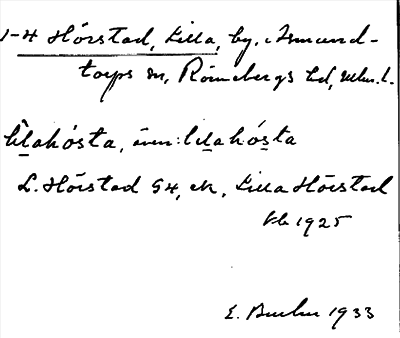 1-4 Hörstad, Lilla, by, Asmund-
torps sn, Rönnebergs hd, Mlm. l.
lilahósta, även: lilahósta
L. Hörstad G4, ek, Lilla Hörstad
kb 1925
E. 1933